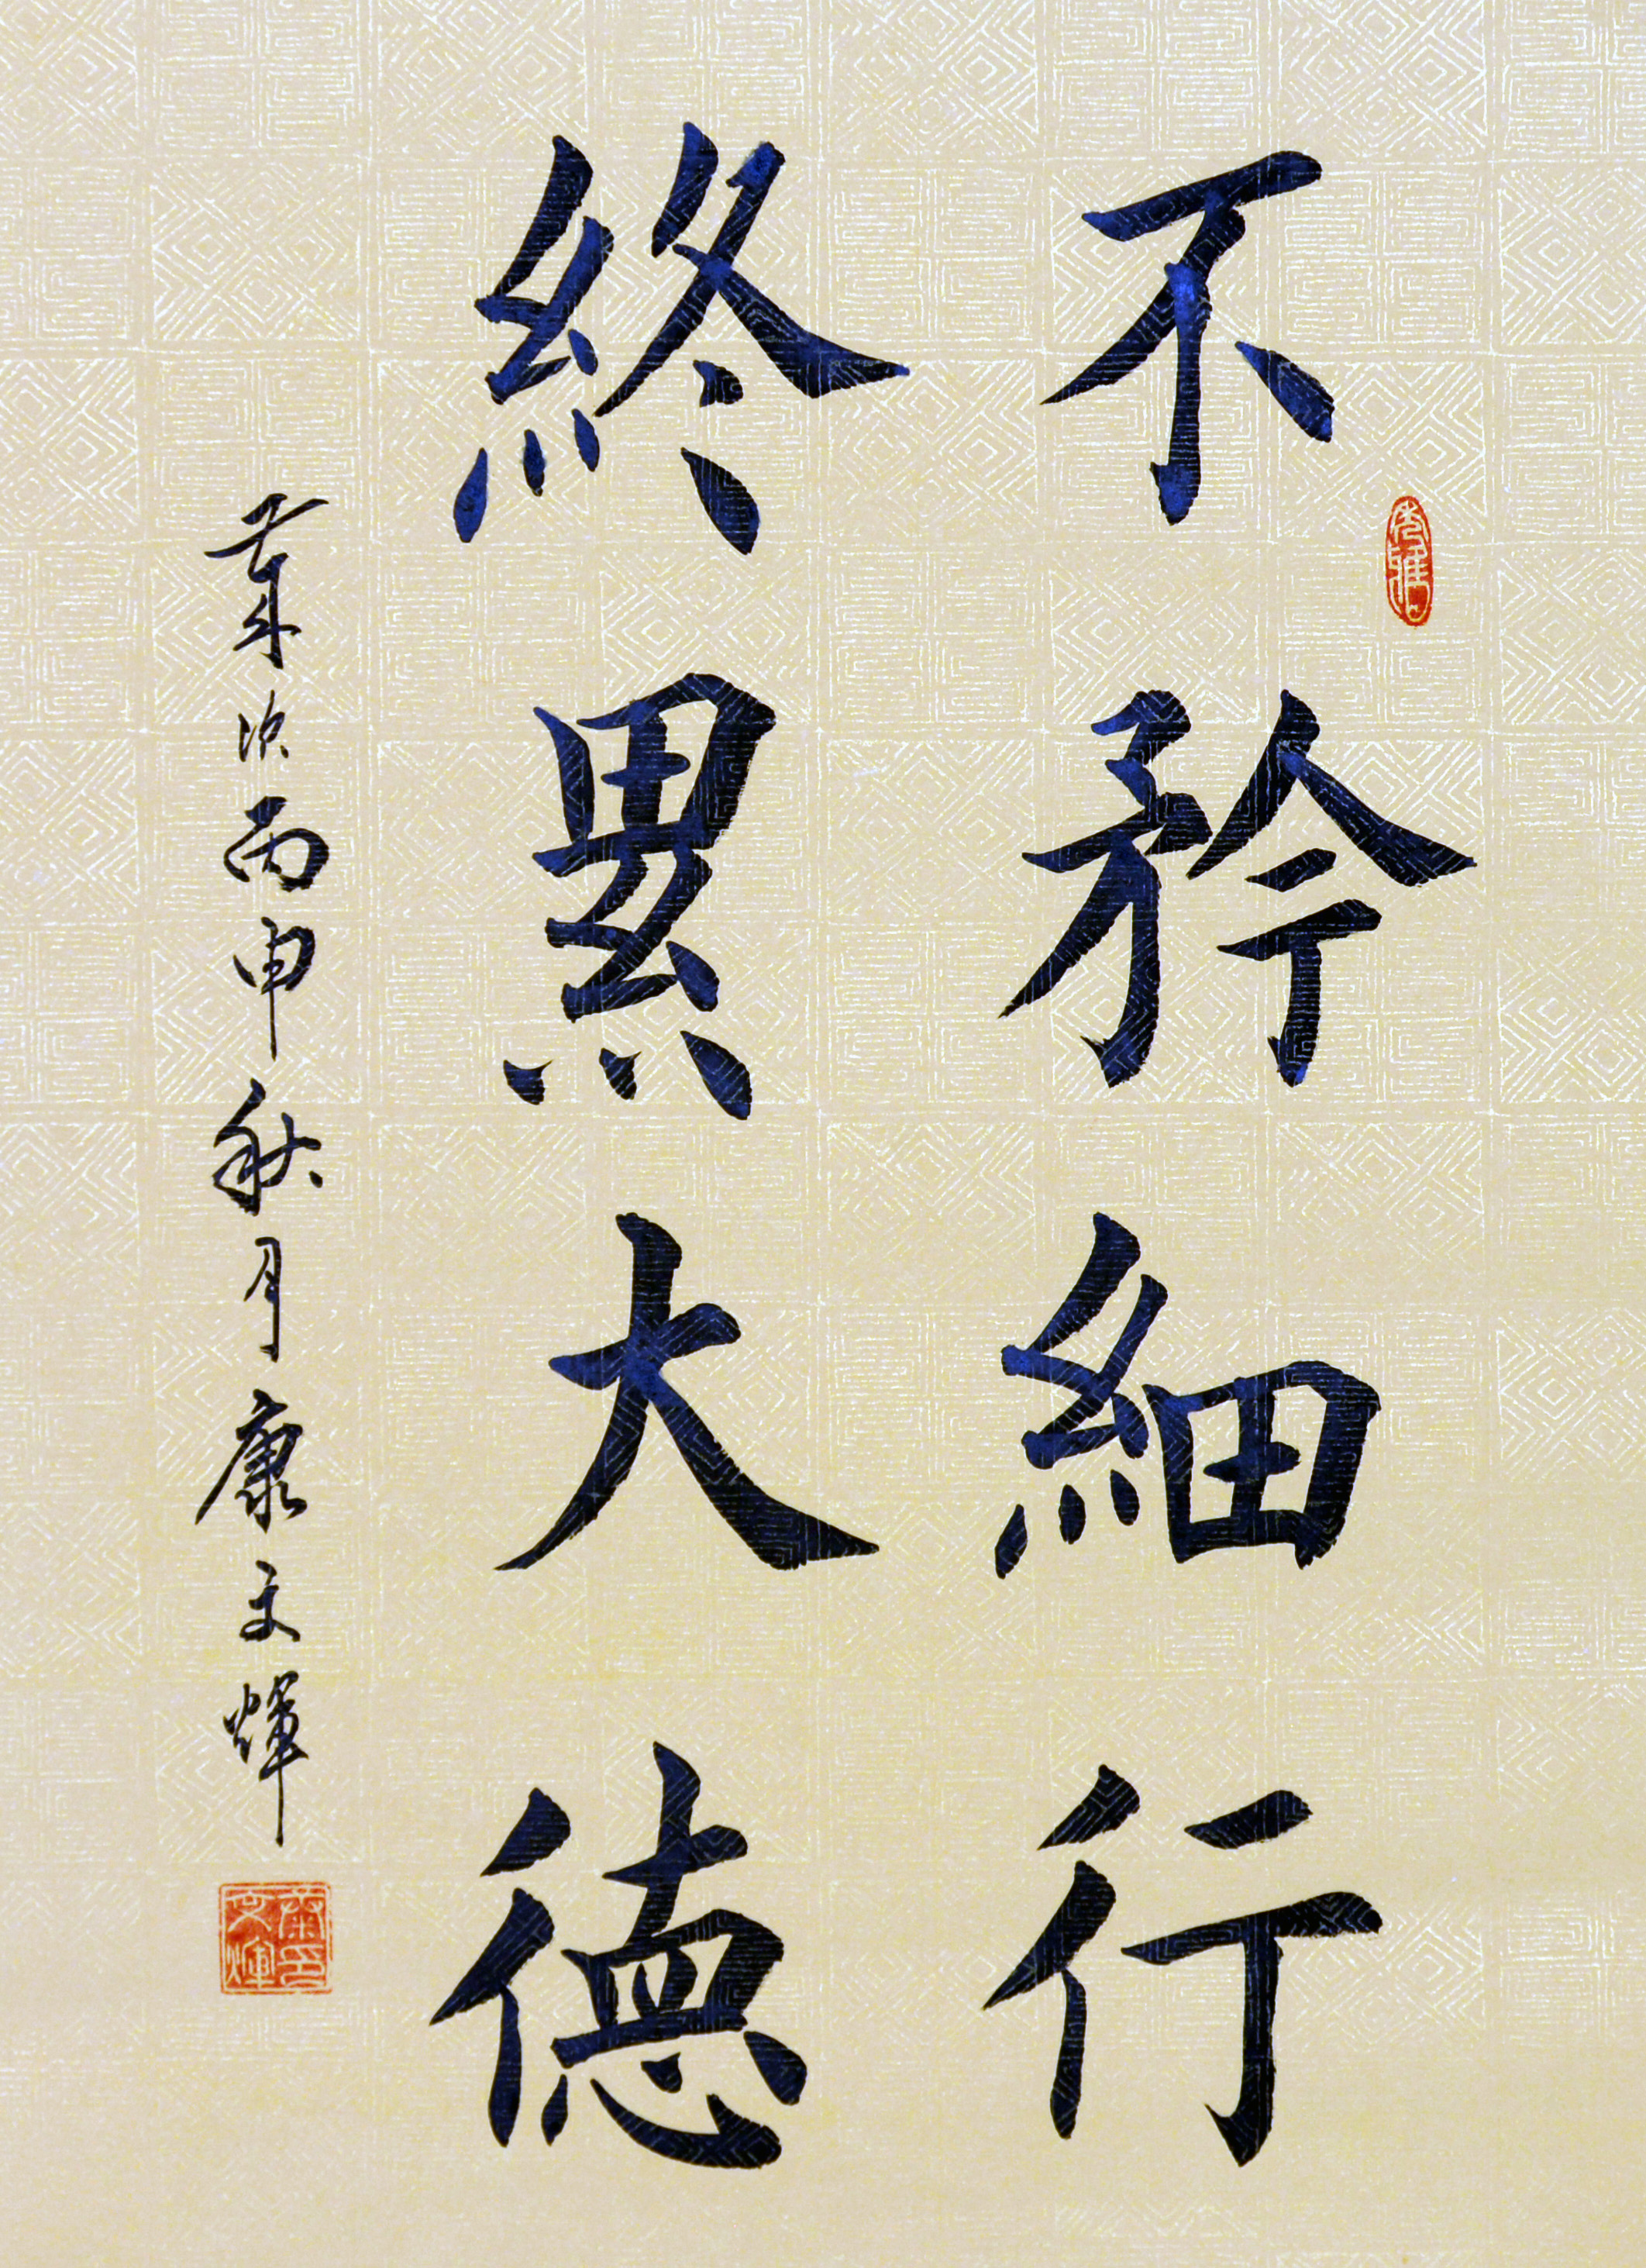 不矜細行
終累大德
岁次丙申秋月康文輝
康印文輝